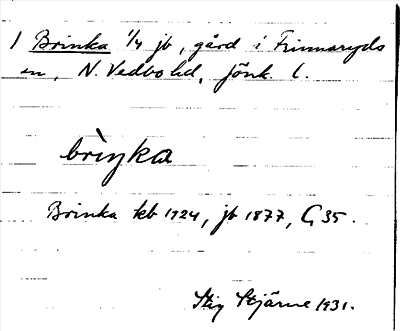 1 Brinka 1/4 jb, gård i Frinnaryds
sn, N. Vedbo hd, Jönk. l.
brìŋka
Brinka kb 1924, jb 1877, G 35.
Stig Stjärne 1931.